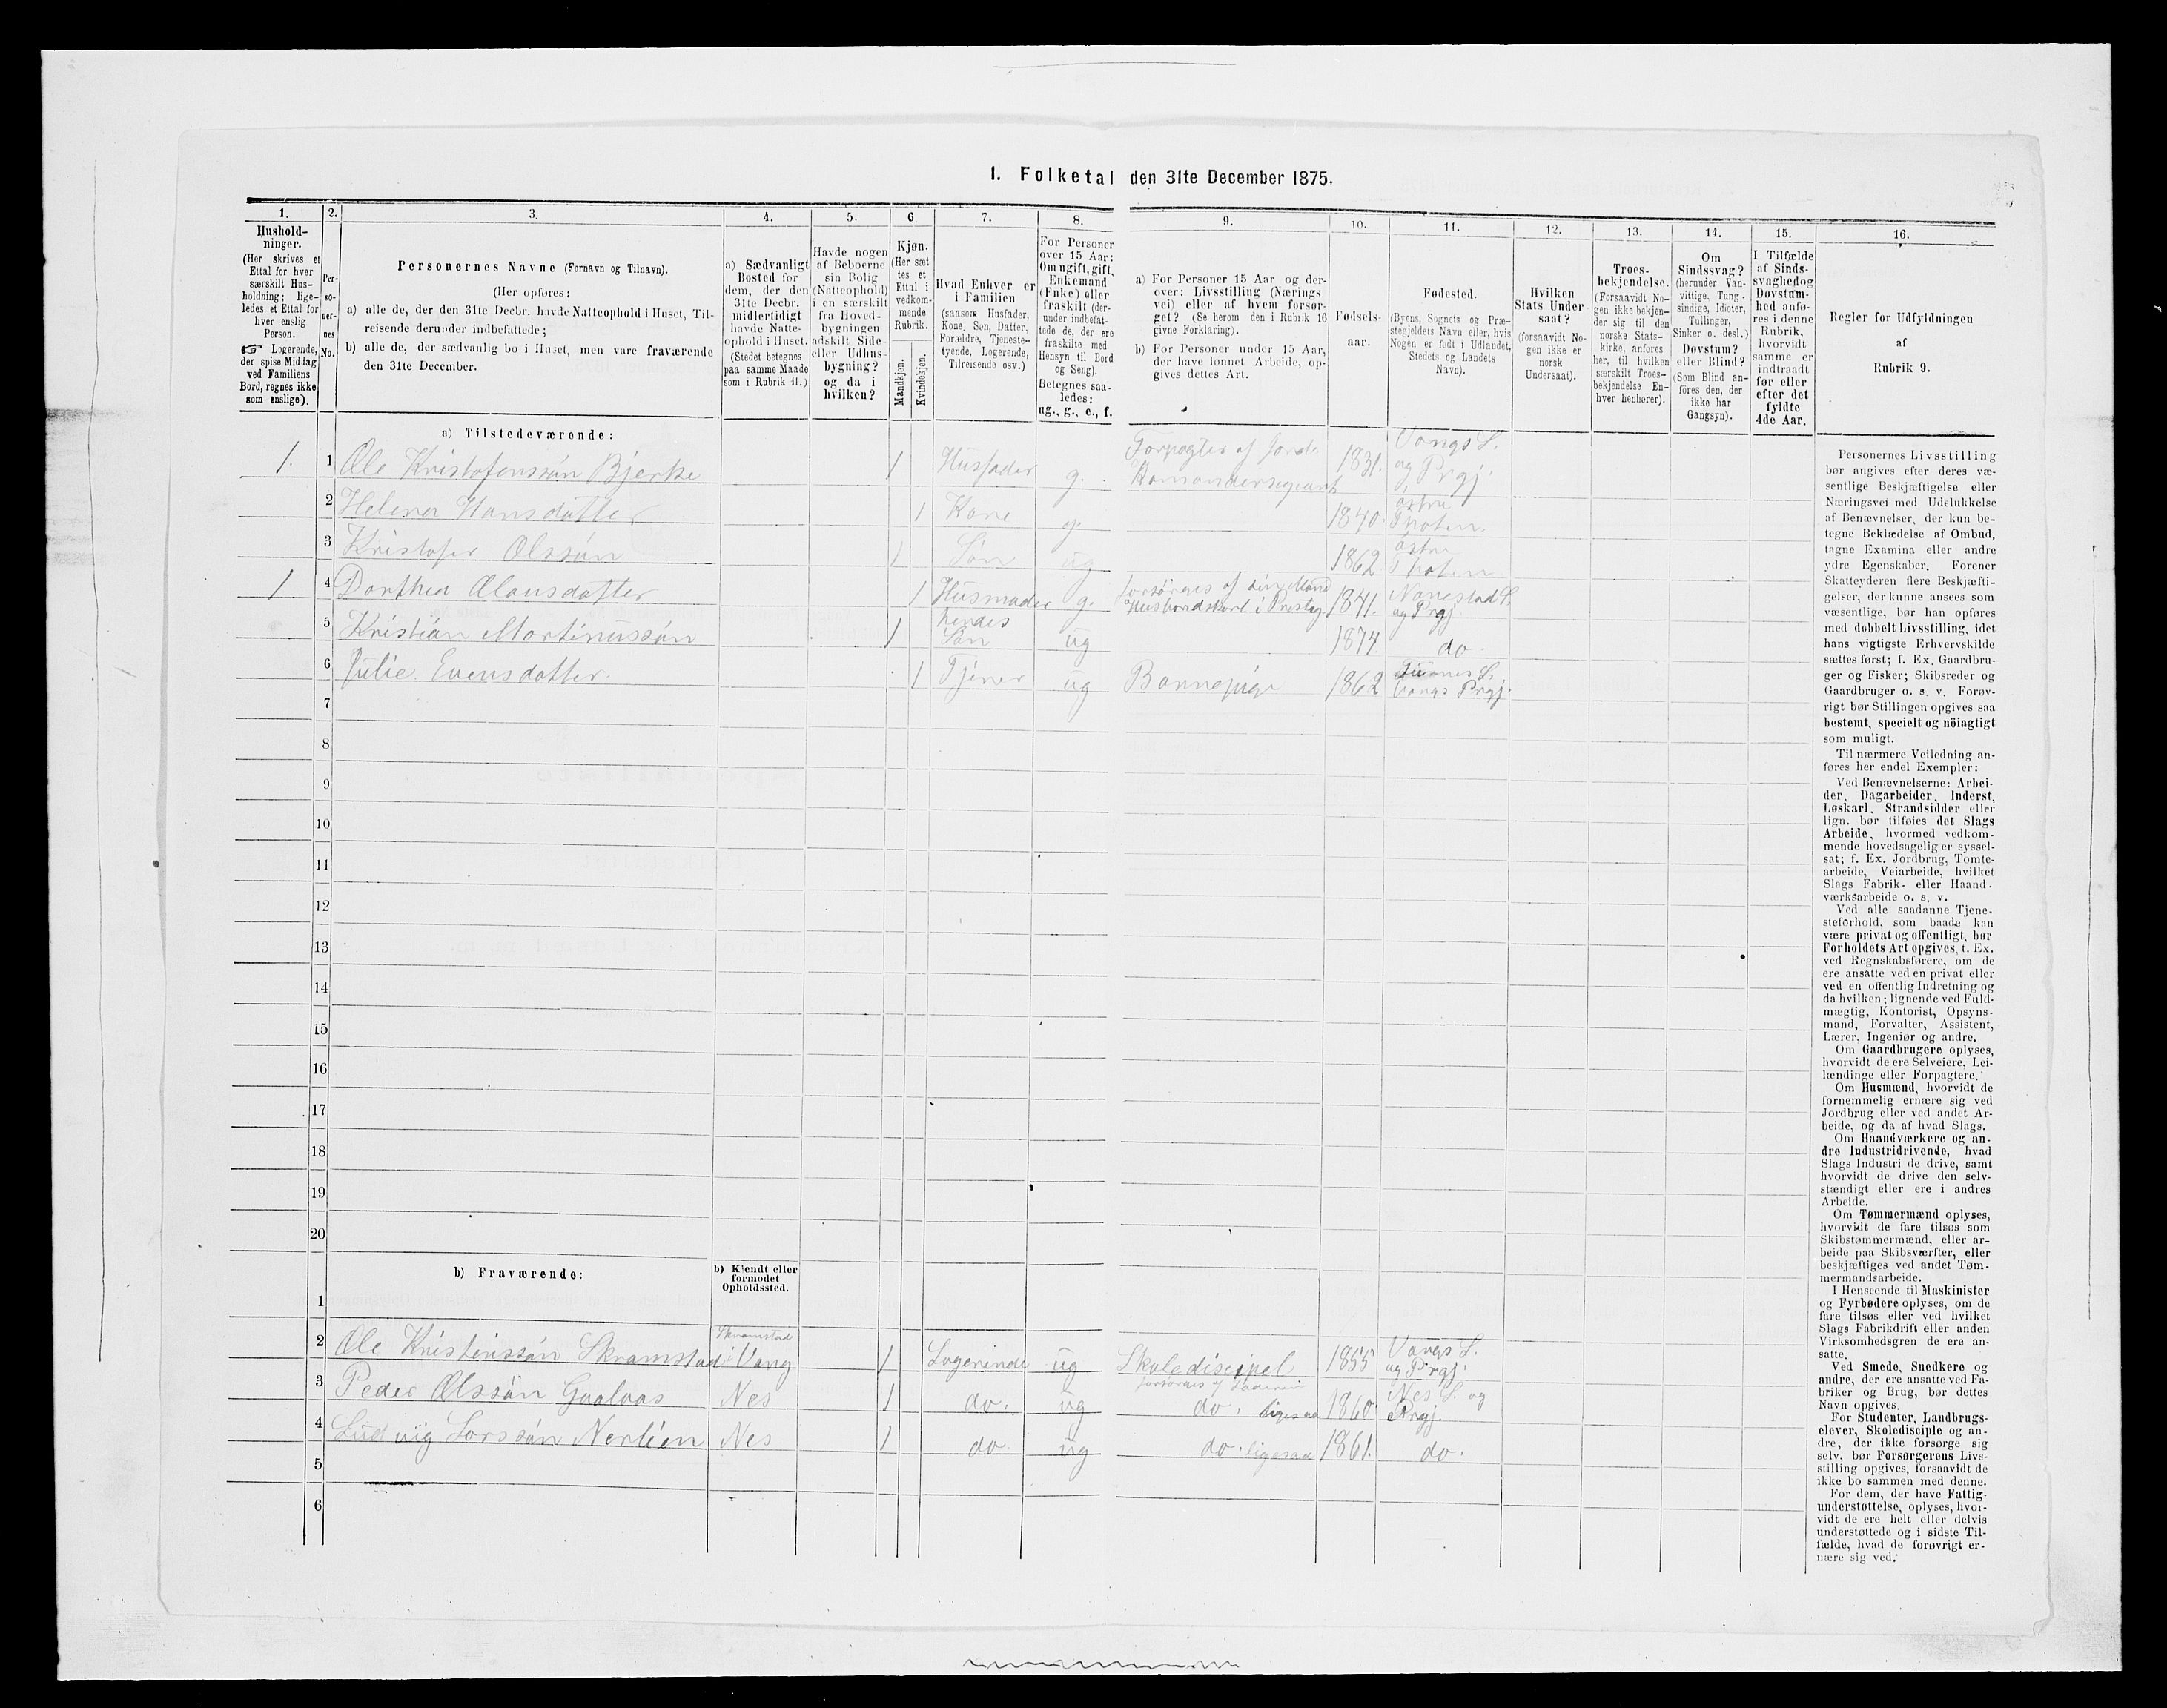 I. Folketal den 31te December 1875.
1. 2. 3. 4. 5. 6 7. 8. 9. 10. 11. 12. 13. 14. 15. 16.
Hushold-
ninger.
(Her skrives et
Ettal for hver
særskilt Hus-
holdning; lige-
ledes et Ettal for
hver enslig
Person.
☞ Logerende,
der spise Middag
ved Familiens
Bord, regnes ikke
som enslige).
Per-
so-
ner-
nes
No.
Personernes Navne (Fornavn og Tilnavn).
(Her opføres:
a) alle de, der den 31te Decbr. havde Natteophold i Huset, Til-
reisende derunder indbefattede;
b) alle de, der sædvanlig bo i Huset, men vare fraværende
den 31te December.
a) Sædvanligt
Bosted for
dem, der den
31te Decbr.
midlertidigt
havde Natte-
ophold i Huset.
(Stedet betegnes
paa samme Maade
som i Rubrik 11.)
Havde nogen
af Beboerne
sin Bolig
(Natteophold)
i en særskilt
fra Hoved-
bygningen
adskilt Side-
eller Udhus-
bygning?
og da i
hvilken?
Kjøn.
(Her sæt
tes et
Ettal i
vedkom-
mende
Rubrik.
Mandkjøn.
Kvindekjøn.
Hvad Enhver er
i Familien
(saasom Husfader,
Kone, Søn, Datter,
Forældre, Tjeneste-
tyende, Logerende,
Tilreisende osv.)
For Personer
over 15 Aar:
Om ugift, gift,
Enkemand
(Enke) eller
fraskilt (der-
under indbefat-
tede de, der ere
fraskilte med
Hensyn til Bord
og Seng).
Betegnes saa-
ledes:
ug., g., e., f.
a) For Personer 15 Aar og der-
over: Livsstilling (Nærings
vei) eller af hvem forsør-
get? (Se herom den i Rubrik 16
givne Forklaring).
b) For Personer under 15 Aar,
der have lønnet Arbeide, op-
gives dettes Art.
Fødsels-
aar.
Fødested.
(Byens, Sognets og Præ-
stegjeldets Navn eller, hvis
Nogen er født i Udlandet,
Stedets og Landets
Navn).
Hvilken
Stats Under-
saat?
(forsaavidt No-
gen ikke er
norsk
Undersaat).
Troes-
bekjendelse.
(Forsaavidt No-
gen ikke bekjen-
der sig til den
norske Stats-
kirke, anføres
her, til hvilken
særskilt Troes-
bekjendelse En-
hver henhører).
Om
Sindssvag?
(herunder Van-
vittige, Tung-
sindige, Idioter,
Tullinger,
Sinker o. desl.)
Døvstum?
eller Blind?
(Som Blind an-
føres den, der
ikke har
Gangsyn).
I Tilfælde
af Sinds-
svaghed og
Døvstum-
hed anfø-
res i denne
Rubrik,
hvorvidt
samme er
indtraadt
før eller
efter det
fyldte
4de Aar.
Regler for Udfyldningen
af
Rubrik 9.
a) Tilstedeværende:
1. 1 Ole Kristofersøn Bjerke 1 Husfader g. Forpagter af Jord. Komandersegeant 1831. Vangs S. og Prgj.
2 Helena Hansdatter 1 Kone g. 1840 østre Thoten.
3 Kristofer Olssøn 1 Søn ug 1862 østre Thoten
1 4 Dorthea Olausdatter 1 Husmoder g. forsørges af sin Mand 1841. Nanestad S. og Prgj.
5 Kristian Martinussøn 1 hendes Søn ug 1874. do
6 Julie Evensdatter. 1 Tjener ug Barnepige 1862 Furnes S. Vangs Prgj.
7
8
9
10
11
12
13
14
15
16
17
18
19
20
b) Fraværende:
b) Kjendt eller
formodet
Opholdssted.
1
2 Ole Kristenssøn Skramstad Skramstad i Vang 1 Logerende ug Skolediscipel 1855 Vangs S. og Prgj.
3 Peder Olssøn Gaalaas Nes 1 do. ug do. ligesaa 1860 Nes S. og Prgj.
4 Ludvig Larssøn Nerlien Nes 1 do. ug do. ligesaa 1861. do.
5
6
Personernes Livsstilling
bør angives efter deres væ-
sentlige Beskjæftigelse eller
Næringsvei med Udelukkelse
af Benævnelser, der kun be-
tegne Beklædelse af Ombud,
tagne Examina eller andre
ydre Egenskaber. Forener
Skatteyderen flere Beskjæfti-
gelser, der kunne ansees som
væsentlige, bør han opføres
med dobbelt Livsstilling, idet
hans vigtigste Erhvervskilde
sættes først; f. Ex. Gaardbru-
ger og Fisker; Skibsreder og
Gaardbruger o. s. v. Forøv-
rigt bør Stillingen opgives saa
bestemt, specielt og nöiagtigt
som muligt.
Til nærmere Veiledning an-
føres her endel Exempler:
Ved Benævnelserne: Arbei-
der, Dagarbeider, Inderst,
Løskarl, Strandsidder eller
lign. bør tilføies det Slags
Arbeide, hvormed vedkom-
mende hovedsagelig er syssel-
sat; f. Ex. Jordbrug, Tomte-
arbeide, Veiarbeide, hvilket
Slags Fabrik- eller Haand-
værksarbeide o. s. v.
Ved alle saadanne Tjene-
steforhold, som baade kan
være privat og offentligt, bør
Forholdets Art opgives, t. Ex.
ved Regnskabsførere, om de
ere ansatte ved en privat eller
ved en offentlig Indretning og
da hvilken; lignende ved Fuld-
mægtig, Kontorist, Opsyns-
mand, Forvalter, Assistent,
Lærer, Ingeniør og andre.
Om Gaardbrugere oplyses,
hvorvidt de ere Selveiere, Lei-
lændinge eller Forpagtere.
Om Husmænd, hvorvidt de
fornemmelig ernære sig ved
Jordbrug eller ved andet Ar-
beide, og da af hvad Slags.
Om Haandværkere og an-
dre Industridrivende, hvad
Slags Industri de drive, samt
hvorvidt de drive den selv-
stændigt eller ere i andres
Arbeide.
Om Tømmermænd oplyses,
hvorvidt de fare tilsøs som
Skibstømmermænd, eller ar-
beide paa Skibsværfter, eller
beskjæftiges ved andet Tøm-
mermandsarbeide.
I Henseende til Maskinister
og Fyrbødere oplyses, om de
fare tilsøs eller ved hvilket
Slags Fabrikdrift eller anden
Virksomhedsgren de ere an-
satte.
Ved Smede, Snedkere og
andre, der ere ansatte ved Fa-
briker og Brug, bør dettes
Navn opgives.
For Studenter, Landbrugs-
elever, Skoledisciple og an-
dre, der ikke forsørge sig
selv, bør Forsørgerens Livs-
stilling opgives, forsaavidt de
ikke bo sammen med denne.
For dem, der have Fattig-
understøttelse, oplyses, hvor-
vidt de ere helt eller delvis
understøttede og i sidste Til-
fælde, hvad de forøvrigt er-
nære sig ved.